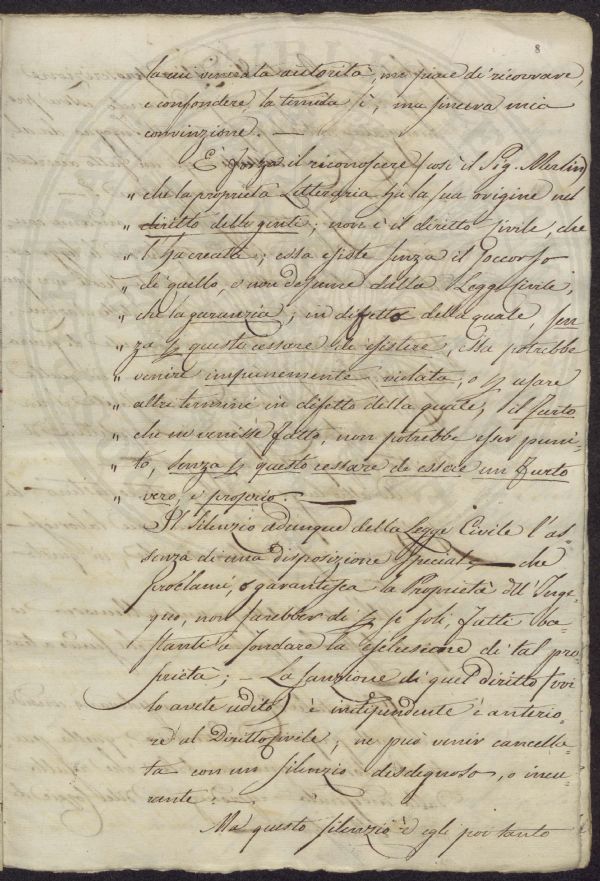 8
la cui venerata autorità, mi piace di ricovrare,
e confondere la timida sì, ma sincera mia
convinzione. —
È forza il riconoscere (così il Sig. Merlin)
" che la proprietà Letteraria hà la sua origine nel
" diritto delle genti; non è il diritto Civile, che
" l'ha creata; essa esiste senza il soccorso
" di quello, e non desume dalla Legge Civile,
" che la garanzia; in difetto della quale, sen
" za p questo cessare di esistere, essa potrebbe
" venire impunemente violata, o p usare
" altri termini in difetto della quale, il furto
" che ne venisse fatto, non potrebbe esser puni-
" to, senza p questo cessare di essere un furto
" vero, e proprio. —
Il Silenzio adunque della Legge Civile l'as-
senza di una disposizione speciale — che
proclami, o garantisca la Proprietà dell'Inge-
gno, non sarebber di p se soli, fatti ba-
stanti a fondare la esclusione di tal pro-
prietà; — La sanzione di quel Diritto (voi
lo avete udito) è indipendente è anterio-
re al Diritto Civile; ne può venir cancella-
ta con un silenzio disdegnoso, o incu-
rante. —
Ma questo silenzio è egli poi tanto